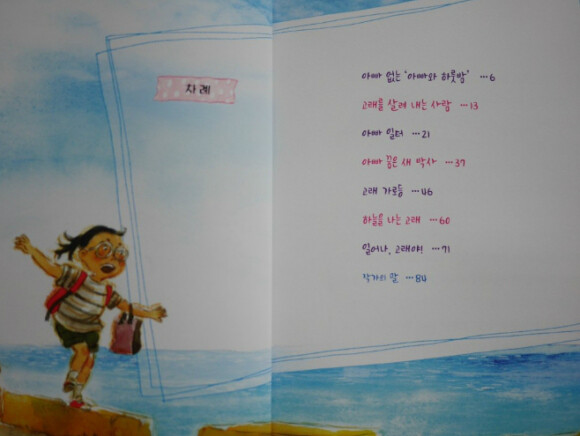 차례
아빠 없는 '아빠와 하룻밤' …6
고래를 살려 내는 사람 …13
아빠 일터 …21
아빠 같은 새 박사 …37
고래 가로등 …46
하늘을 나는 고래 …60
일어나, 고래야! …71
작가의 말 …84